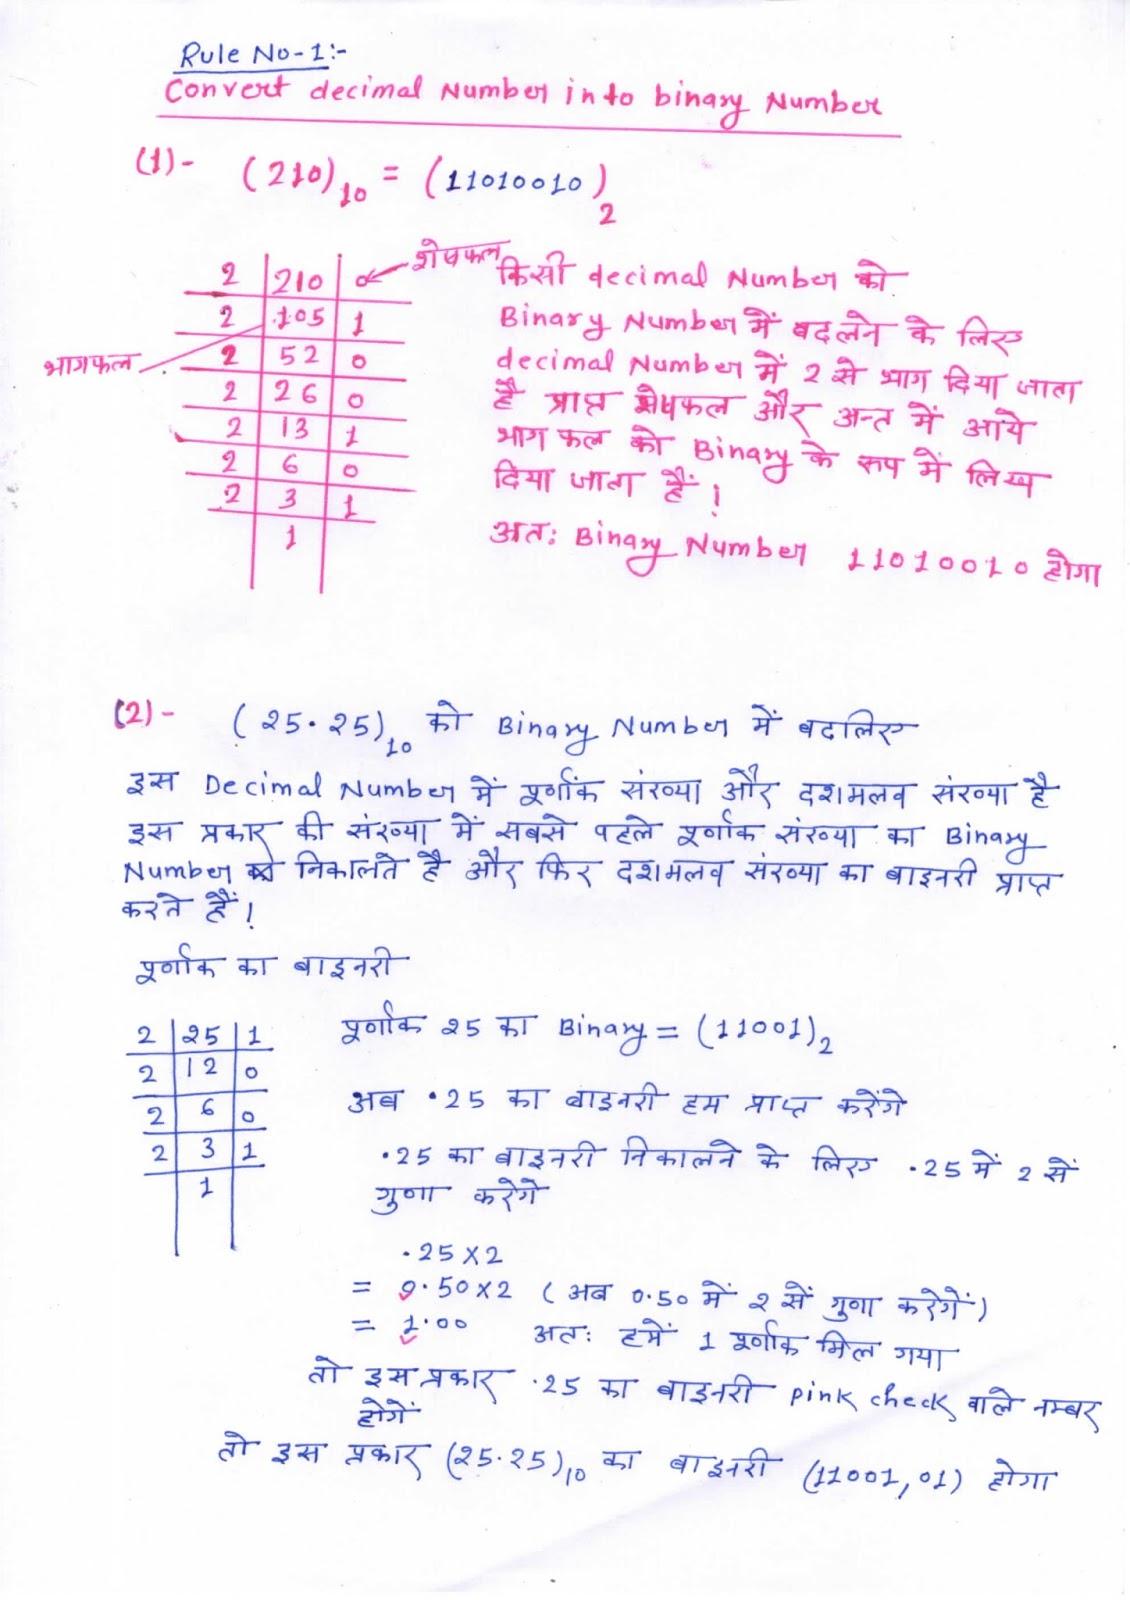 Rule No-1:-
Convert decimal Number into binary Number
(1)- (210)10 = (11010010)2
2 | 210 | 0 ← शेषफल
2 | 105 | 1
भागफल
2 | 52 | 0
2 | 26 | 0
2 | 13 | 1
2 | 6 | 0
2 | 3 | 1
1
किसी decimal Number को
Binary Number में बदलने के लिए
decimal Number में 2 से भाग दिया जाता
है प्राप्त शेषफल और अन्त में आये
भाग फल को Binary के रूप में लिख
दिया जाता हैं!
अतः Binary Number 11010010 होगा
(2)- (25.25)10 को Binary Number में बदलिए
इस Decimal Number में पूर्णांक संख्या और दशमलव संख्या है
इस प्रकार की संख्या में सबसे पहले पूर्णाक संख्या का Binary
Number निकालते है और फिर दशमलव संख्या का बाइनरी प्राप्त
करते हैं!
पूर्णाक का बाइनरी
2 | 25 | 1
2 | 12 | 0
2 | 6 | 0
2 | 3 | 1
1
पूर्णाक 25 का Binary = (11001)2
अब .25 का बाइनरी हम प्राप्त करेंगे
.25 का बाइनरी निकालने के लिए .25 में 2 सें
गुणा करेगे
.25×2
= 0.50×2 (अब 0.50 में 2 सें गुणा करेगें)
= 1.00 अतः हमें 1 पूर्णाक मिल गया
तो इस प्रकार .25 का बाइनरी pink check वाले नम्बर
होगें
तो इस प्रकार (25.25)10 का बाइनरी (11001,01) होगा